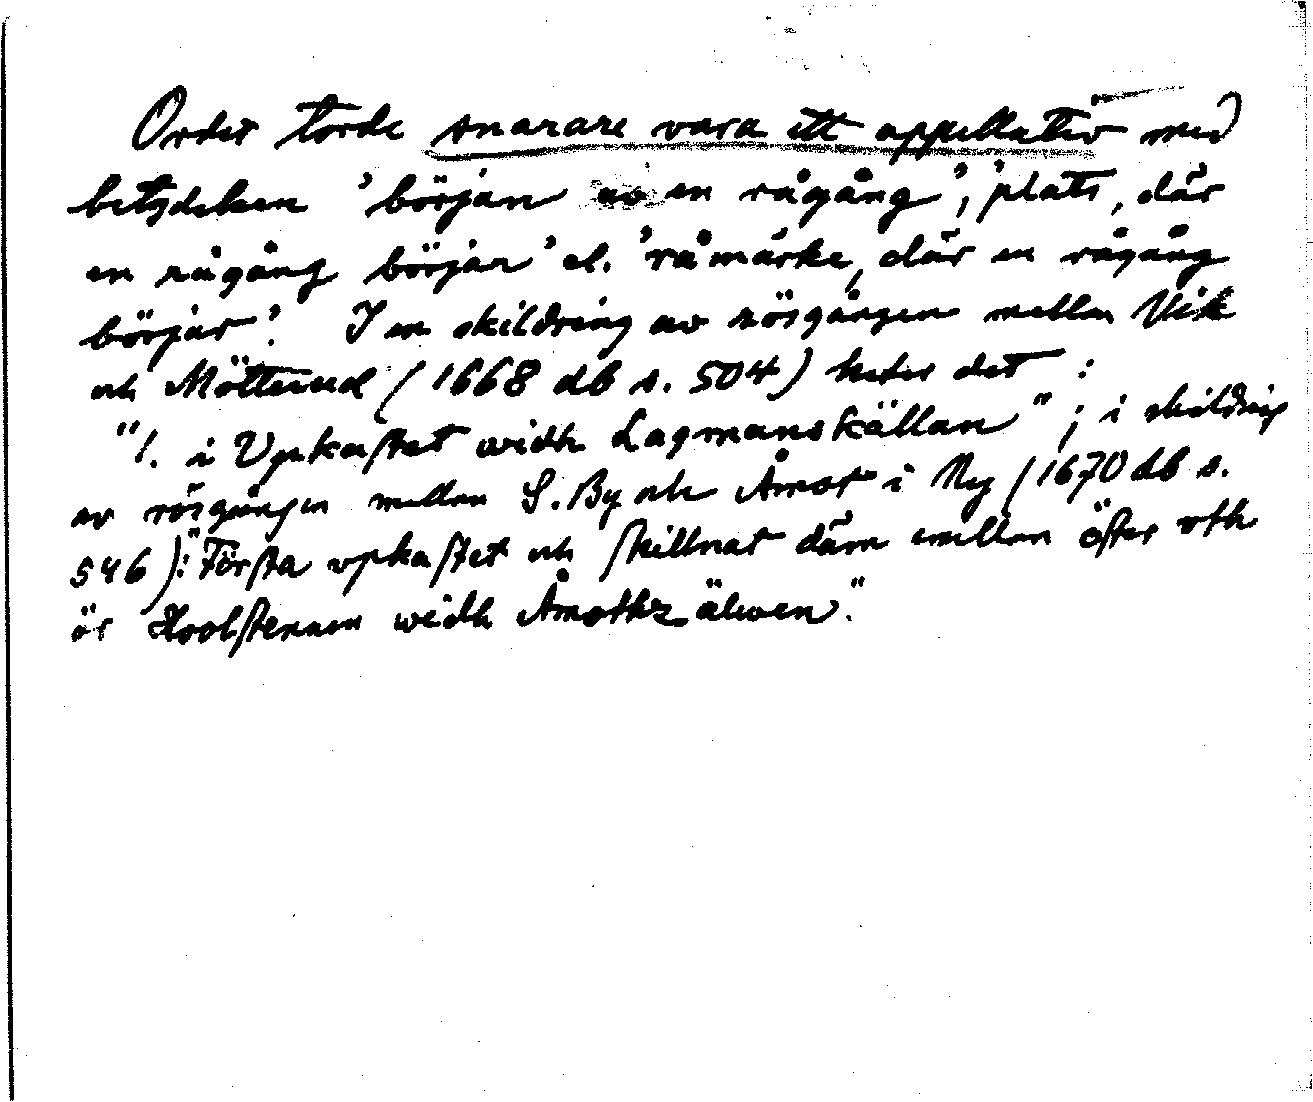 Ordet torde snarare vara ett appellativ med
betydelsen 'början av en rågång', 'plats, där
en rågång börjar' el. 'råmärke, där en rågång
börjar'. I en skildring av rösgången mellan Vik
och Mötterud (1668 db s. 504) heter det :
"1. i Vpkastet widh Lagmanskällan" ; i skildring
av rösgången mellan S. By och Åmot i Ny (1670 db s.
546): "Första vpkastet och skillnat däm emellan öster vth
är Hoolstenen widh Åmothz älwen."